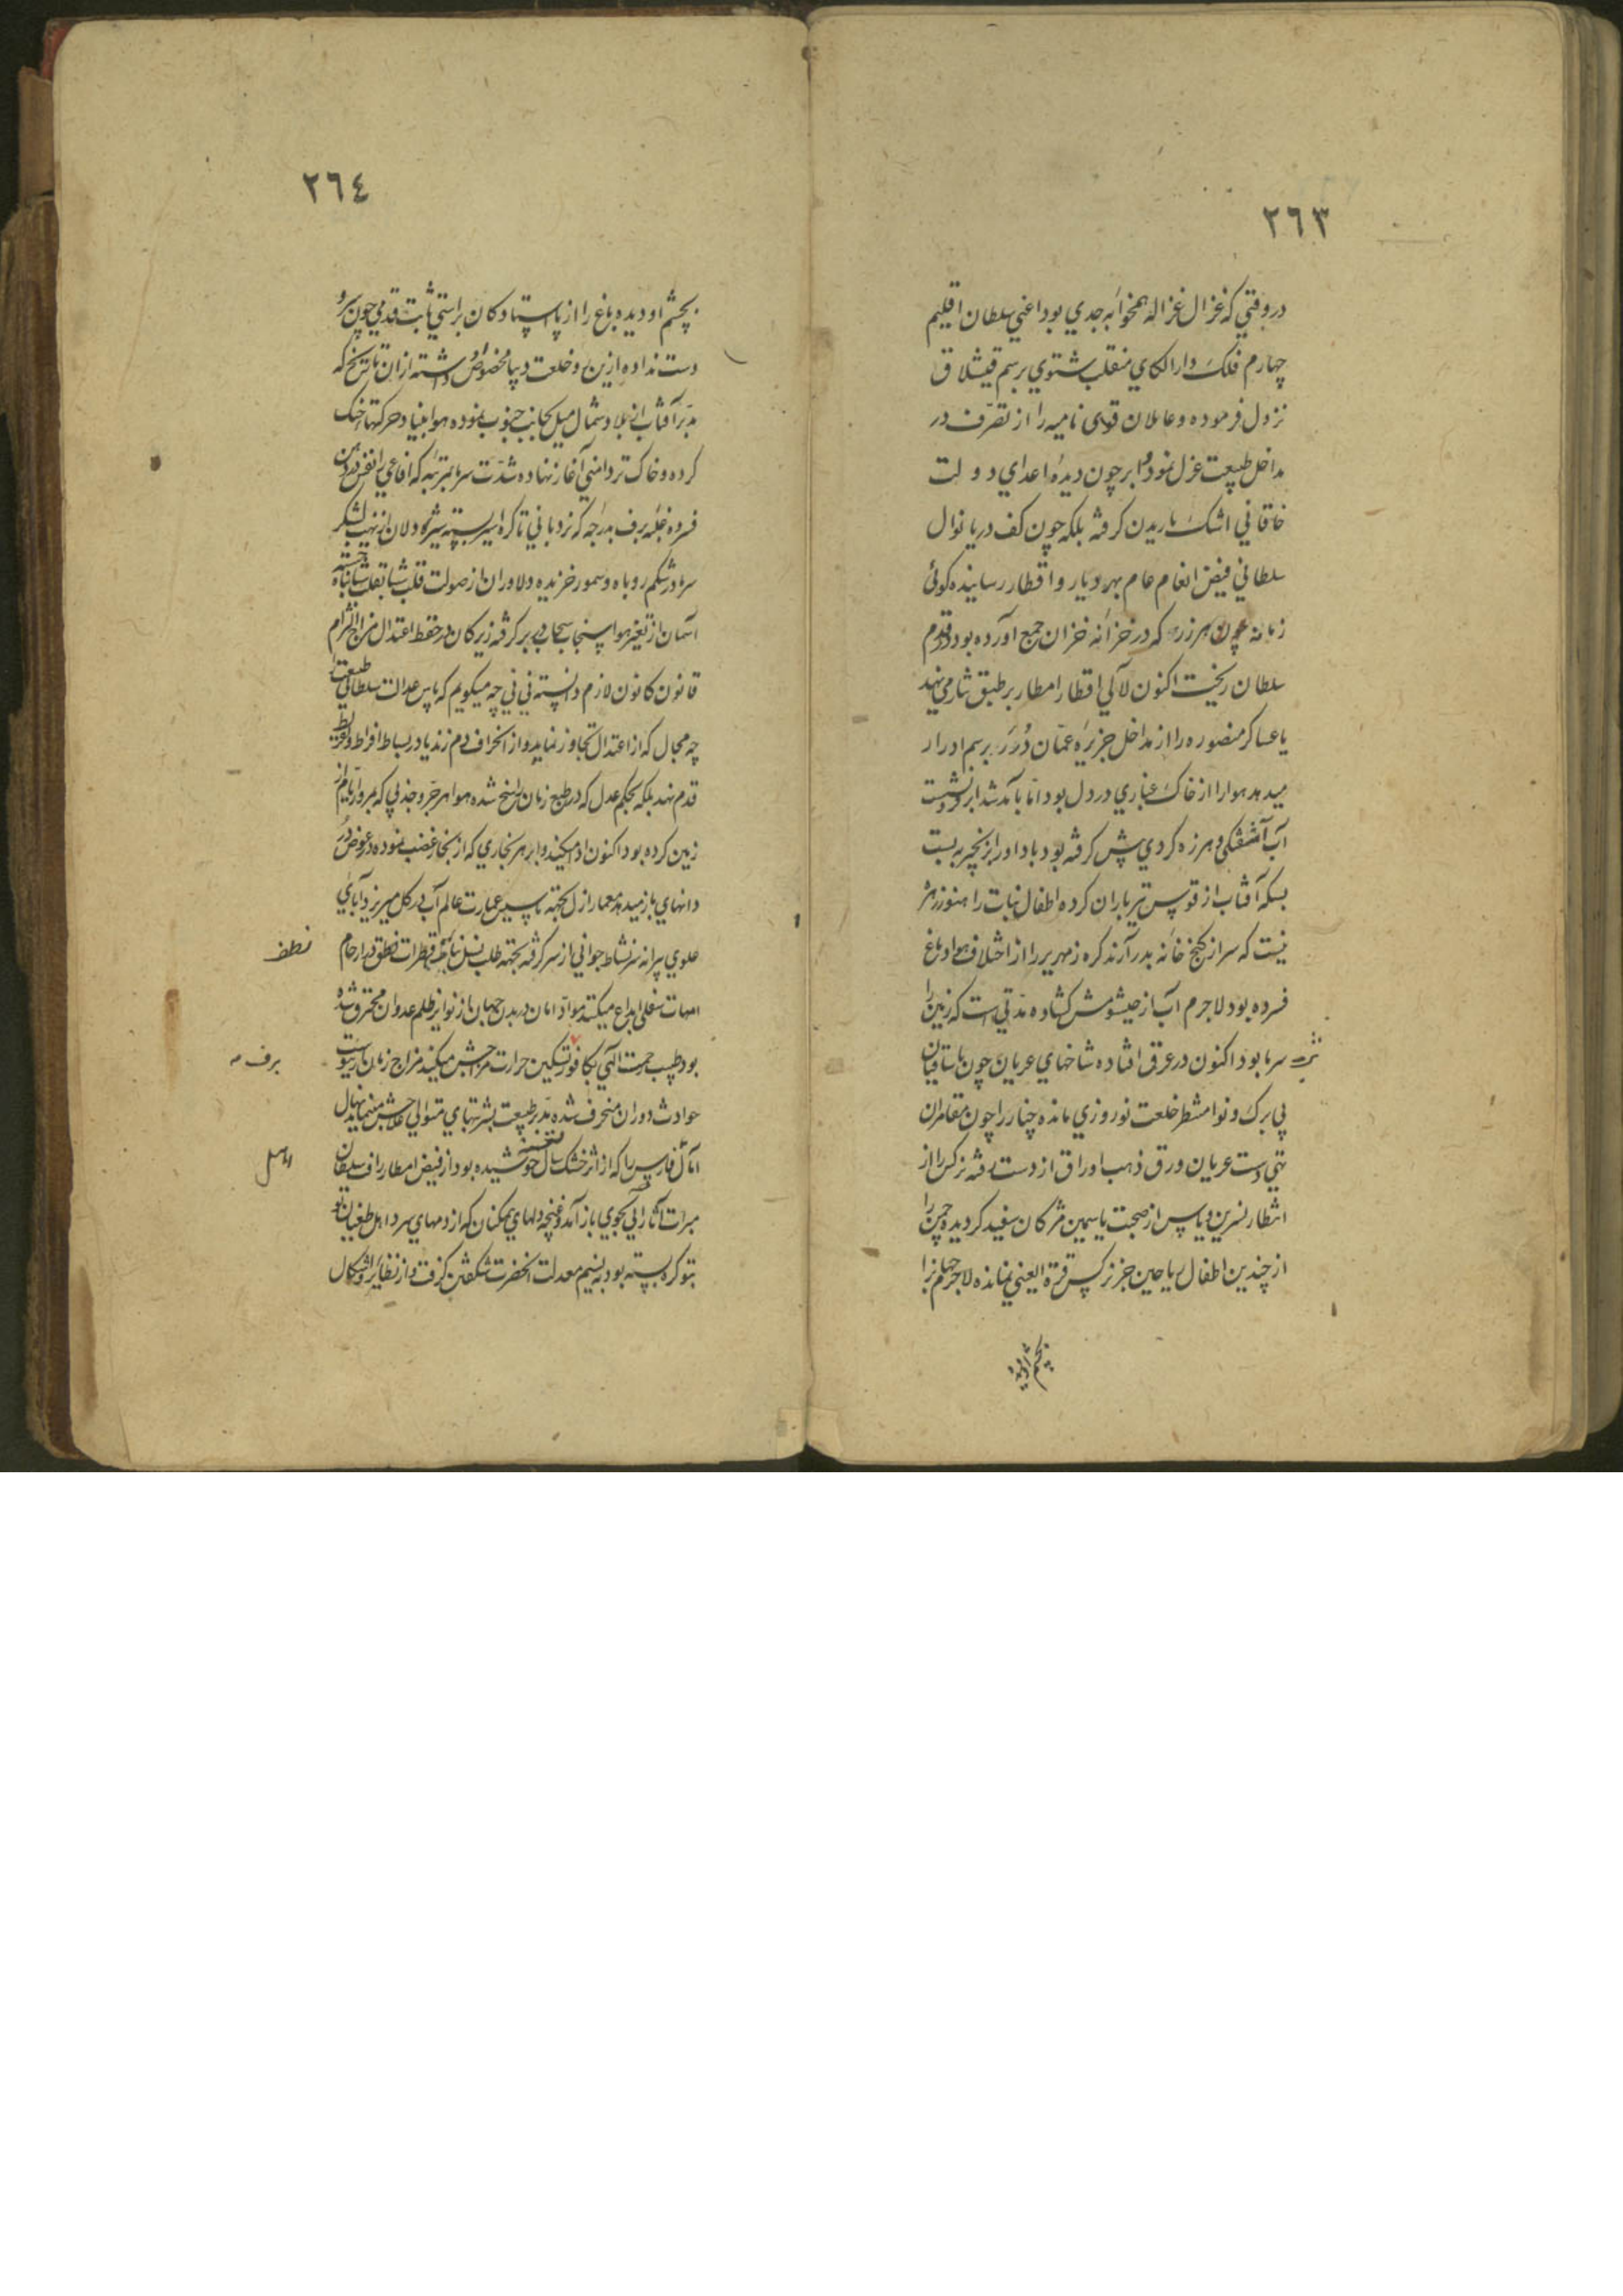 ٢٦٣
در وقتي كه غزال غزاله همخوابه جدي بود اعني سلطان اقليم
چهارم فلك دار الكاي منقلب شتوي برسم قيشلاق
نزول فرموده و عاملان قوى ناميه را از تصرّف در
مداخل طبيعت عزل نمود و ابر چون ديدۀ اعداي دولت
خاقاني اشك باريدن كرفته بلكه چون كف دريا نوال
سلطاني فيض انعام عام بهر ديار و اقطار رسانيده كوئى
زمانه چون هر زر كه در خزانه خزان جمع آورده بود در قدم
سلطان ريخت اكنون لآلي اقطار امطار بر طبق نثار مي نهد
يا عساكر منصوره را از مداخل جزيره عمّان دُرَر برسم ادرار
ميدهد هوا را از خاك غباري در دل بود امّا بآمد شد ابر فرو نشست
آب آشفتكي و هرزه كردي پيش كرفته بود باد او را بزنجير به بست
بسكه آفتاب از قوس تير باران كرده اطفال نبات را هنوز زهرۀ
نيست كه سر از كنج خانه بدر آرند كره زمهرير را از اختلاف هوا دماغ
فسرده بود لاجرم آب از خيشومش كشاده مدّتي است كه زمين را
سرما بود اكنون در عرق افتاده شاخهاي عريان چون
بي برك و نوا منتظر خلعت نوروزي مانده چنار را چون مقامران
تهي دست عريان ورق ذهب اوراق از دست رفته نركس را از
انتظار نسرين و ياس از صحبت ياسمين مژكان سفيد كرديده چمن را
از چندين اطفال رياحين جز نركس قرة العيني نمانده لاجرم جهان را
بچشم او ديده
٢٦٤
بچشم او ديده باغ را از پا ستادكان براستي ثابت قدمي چون سرو
دست نداده ازين رو خلعت ديبا مخصوص او داشته از ان تاريخ كه
مدبّر آفتاب از بلاد شمال ميل بجانب جنوب نموده هوا بنياد حركتهاي خنك
كرده و خاك تر دامني آغاز نهاده شدّت سرما بمرتبه كه افاعي را نفس در دهن
فسرده غلبه برف بدرجه كه نردباني تا كره اثير بسته شير دلان از نهيب لشكر
سرما در شكم روباه و سمور خزيده دلاوران از صولت قلب شتا بقلب شتا پناه جسته
آسمان از تغيّر هوا سنجاب سحاب در بر كرفته زيركان در حفظ اعتدال مزاج التزام
قانون كانون لازم دانسته ني ني چه ميكويم كه پاس عدالت سلطاني طبيعت را
چه مجال كه از اعتدال تجاوز نمايد و از انحراف دم زند يا در بساط افراط و تفريط
قدم نهد بلكه بحكم عدل كه در طبع زمان راسخ شده هوا هر جرّ و جذبي كه بمرور ايّام از
زمين كرده بود اكنون ادا ميكند و ابر هر بخاري كه از بخار غصب نموده در عوض دُر
دانهاي باز ميدهد معمار ازل بجهته تاسيس عمارت عالم آب در كل ميريزد آباي
علوي پيرانه سر نشاط جواني از سر كرفته بجهته طلب نسل نتايج قطرات نطق در ارحام
نطف
امهات سفلي ايداع ميكنند موادّ امان در بدن جهان از نواير ظلم عدوان محترق شده
بود طبيب رحمت الهي بكافور تسكين حرارت مزاجش ميكند مزاج زمان از يبوست
برف
حوادث دوران منحرف شده مدبّر طبيعت بشربتهاي متوالي علاجش مينمايد نهال
آمال فارس را كه از اثر خشك سال خوشيده بود از فيض امطار رافت سلطان
مبرات آثار آبي بجوي باز آمد و غنچه دلهاي مسكنان كه از دمهاي سرد اهل طغيان تو
بتو كره بسته بود به نسيم معدلت آنحضرت شكفتن كرفت و از نظاير و اشكال